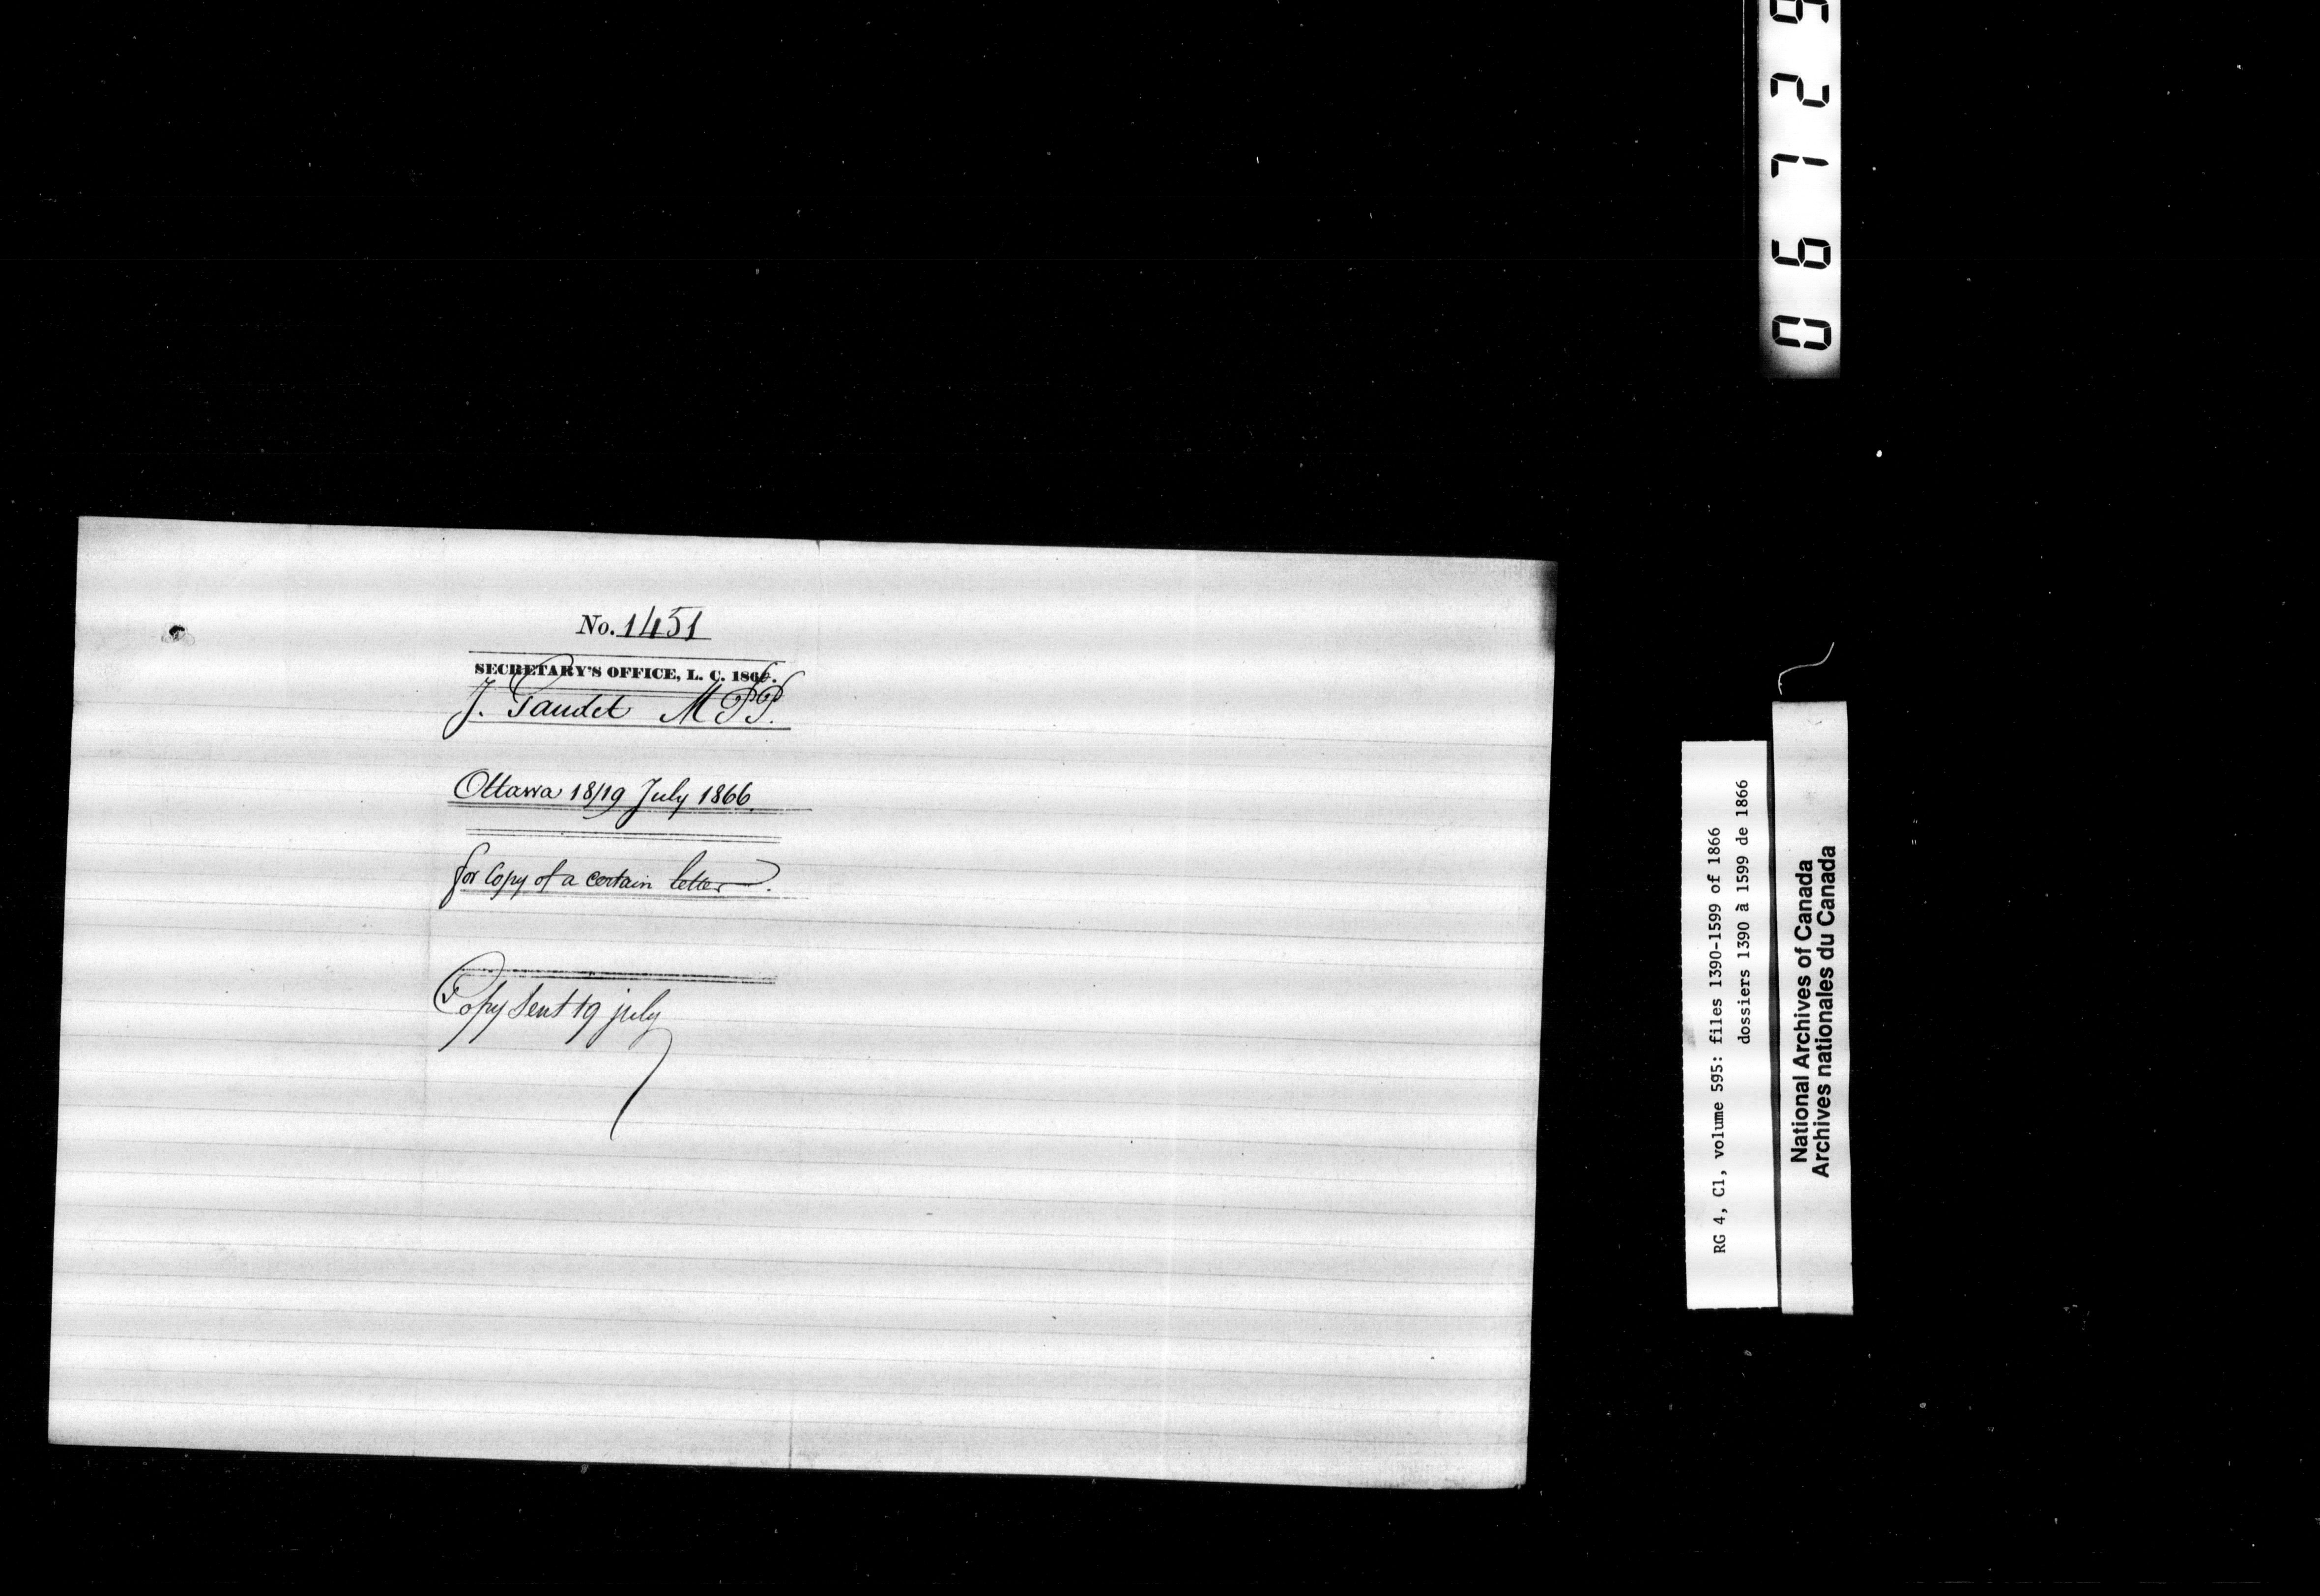 No. 1451
SECRETARY'S OFFICE, L. C. 1866.
J. Gaudet MPP.
Ottawa 18/19 July 1866
for Copy of a certain letter.
Copy sent 19 july
06729
RG 4, C1, volume 595: files 1390-1599 of 1866
dossiers 1390 à 1599 de 1866
National Archives of Canada
Archives nationales du Canada